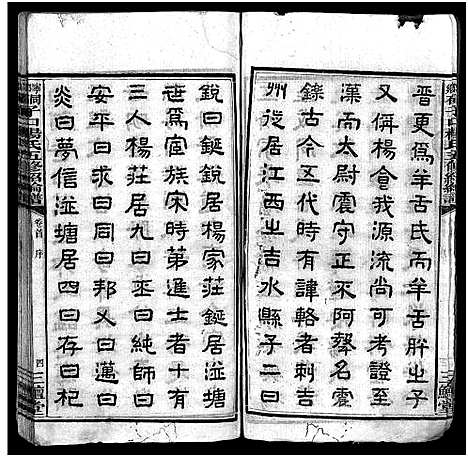 晉更爲羊舌氏而羊舌胖之子
又倂楊會我源流尚可考證矣
漢而太尉震守正不阿聲名霍
鑠古今五代時有諱輅者刺吉
州從居江西之吉水縣子二曰
銳曰鋋銳居楊家莊鋋居湴塘
世爲宦族宋時第進士者十有
三人楊莊居九曰丕曰純師曰
安平曰求曰同曰邦乂曰邁曰
炎曰夢信湴塘居四曰存曰杞
卷首 序
四 三鱣堂